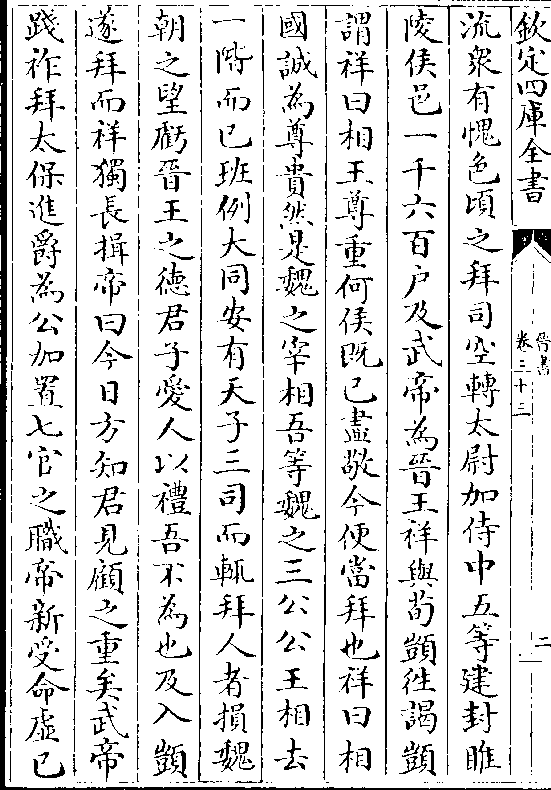 欽定四庫全書
晉書
卷三十三
二
流衆有愧色頃之拜司空轉太尉加侍中五等建封睢
陵侯邑一千六百户及武帝為晉王祥與荀顗徃謁顗
謂祥曰相王尊重何侯既已盡敬今便當拜也祥曰相
國誠為尊貴然是魏之宰相吾等魏之三公公王相去
一階而已班例大同安有天子三司而輒拜人者損魏
朝之望虧晉王之德君子愛人以禮吾不為也及入顗
遂拜而祥獨長揖帝曰今日方知君見顧之重矣武帝
踐祚拜太保進爵為公加置七官之職帝新受命虛已